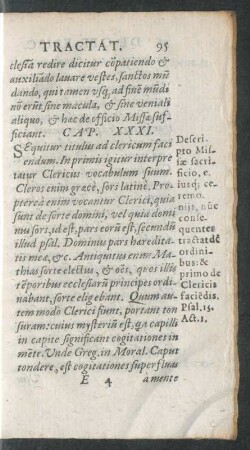 TRACTAT. 95
clesiã redire dicitur cõpatiendo &
auxiliãdo lauare vestes, sanctos mũ
dando, qui tamen vsq; ad finẽ mũdi
nõ erũt sine macula, & sine veniali
aliquo, & hac de officio Missæ suf-
ficiant. CAP. XXXI.
SEquitur titulus ad clericum faci
endum. In primis igitur interpre
tatur Clericus vocabulum suum.
Cleros enim græcè, sors latinè. Pro-
pterea enim vocantur Clerici, quia
sunt de sorte domini, vel quia domi
nu sors, id est, pars eorũ est, secundũ
illud psal. Dominus pars hæreditã-
tis meæ, &c. Antiquitus enim Ma-
thias sorte electus, & oẽs, quos illis
tẽporibus ecclesiarũ principes ordi-
nabant, sorte eligebant. Quum au-
tem modo Clerici fiunt, portant ton
suram: cuius mysteriũ est, qa capilli
in capite significant cogitationes in
mẽte. Unde Greg. in Moral. Caput
tondere, est cogitationes superfluas
E 4 a mente
Descri-
pto Mis-
sæ sacri-
ficio, e-
iusq; ce-
remo-
nijs, nũc
conse-
quenter
tractatd̃e
ordini-
bus: &
primo de
Clericis
faciẽdis.
Psal. 15.
Act. 1.